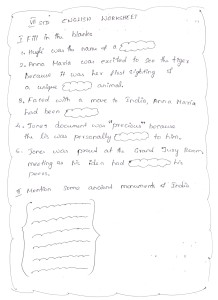 VII STD ENGLISH WORKSHEET
I Fill in the blanks
1. Hughli was the name of a
2. Anna Maria was excited to see the tiger
because it was her first sighting of
a unique animal.
3. Faced with a move to India, Anna Maria
had been
4. Jones document was "precious" because
the Sir was personally to him.
5. Jones was proud at the Grand Jury Room,
meeting as his Eden had his
poems.
II Mention some ancient monuments of India